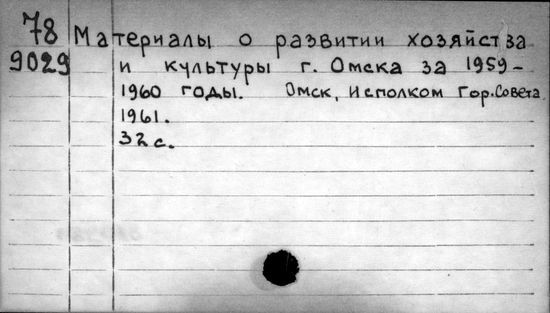 78 Материалы о развитии хозяйства
9029 и культуры г. Омска за 1959-
1960 годы. Омск, Исполком Гор.Совета
1961.
32 с.